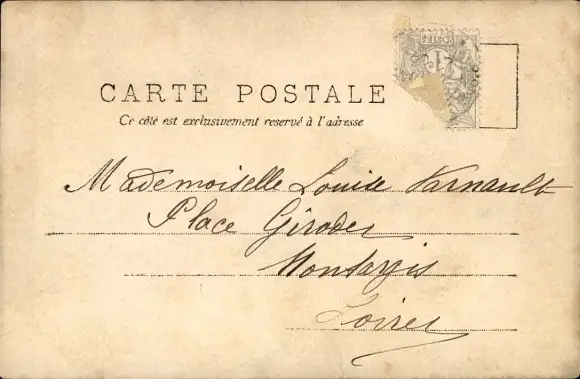 POSTES
1
CARTE POSTALE
Ce côté est exclusivement reservé à l'adresse
Mademoiselle Louise
Place Girodet
Montargis
Loiret